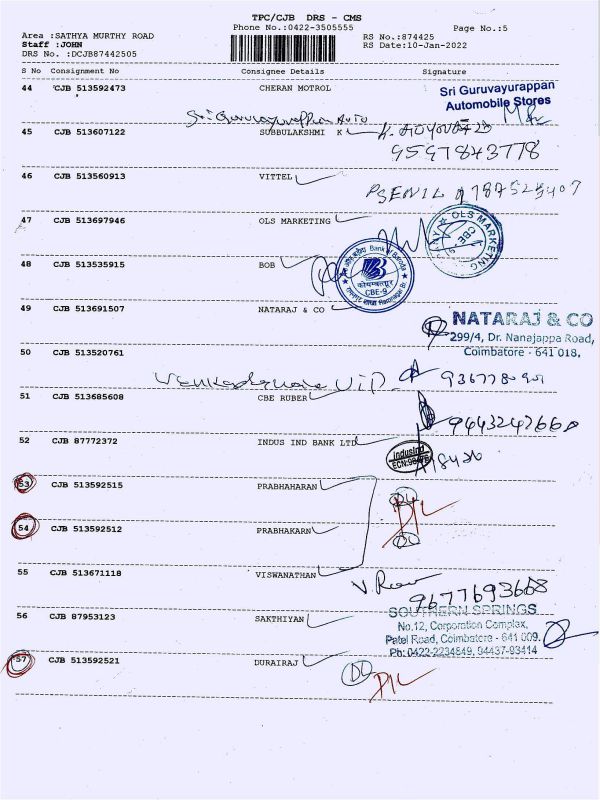 TPC/CJB DRS - CMS
Phone No.:0422-3505555
Page No.:5
Area :SATHYA MURTHY ROAD
RS No.:874425
Staff :JOHN
RS Date:10-Jan-2022
DRS No. :DCJB87442505
S No Consignment No Consignee Details Signature
44 CJB 513592473 CHERAN MOTROL
Sri Guruvayurappan
Automobile Stores
Sri Guruvayurappan Auto
45 CJB 513607122 SUBBULAKSHMI K
9597843778
46 CJB 513560913 VITTEL
47 CJB 513697946 OLS MARKETING
OLS MARKETING
48 CJB 513535915 BOB
Bank of Baroda
कोयम्बत्तूर
CBE-9
49 CJB 513691507 NATARAJ & CO
NATARAJ & CO
299/4, Dr. Nanajappa Road,
Coimbatore - 641 018.
50 CJB 513520761
51 CJB 513685608 CBE RUBER
52 CJB 87772372 INDUS IND BANK LTD
IndusInd
53 CJB 513592515 PRABHAHARAN
54 CJB 513592512 PRABHAKARN
D/L
55 CJB 513671118 VISWANATHAN
9677693668
56 CJB 87953123 SAKTHIYAN
SOUTHERN SPRINGS
No.12, Corporation Complex,
Patel Road, Coimbatore - 641 009.
Ph: 0422-2234849, 94437-93414
57 CJB 513592521 DURAIRAJ
D/L